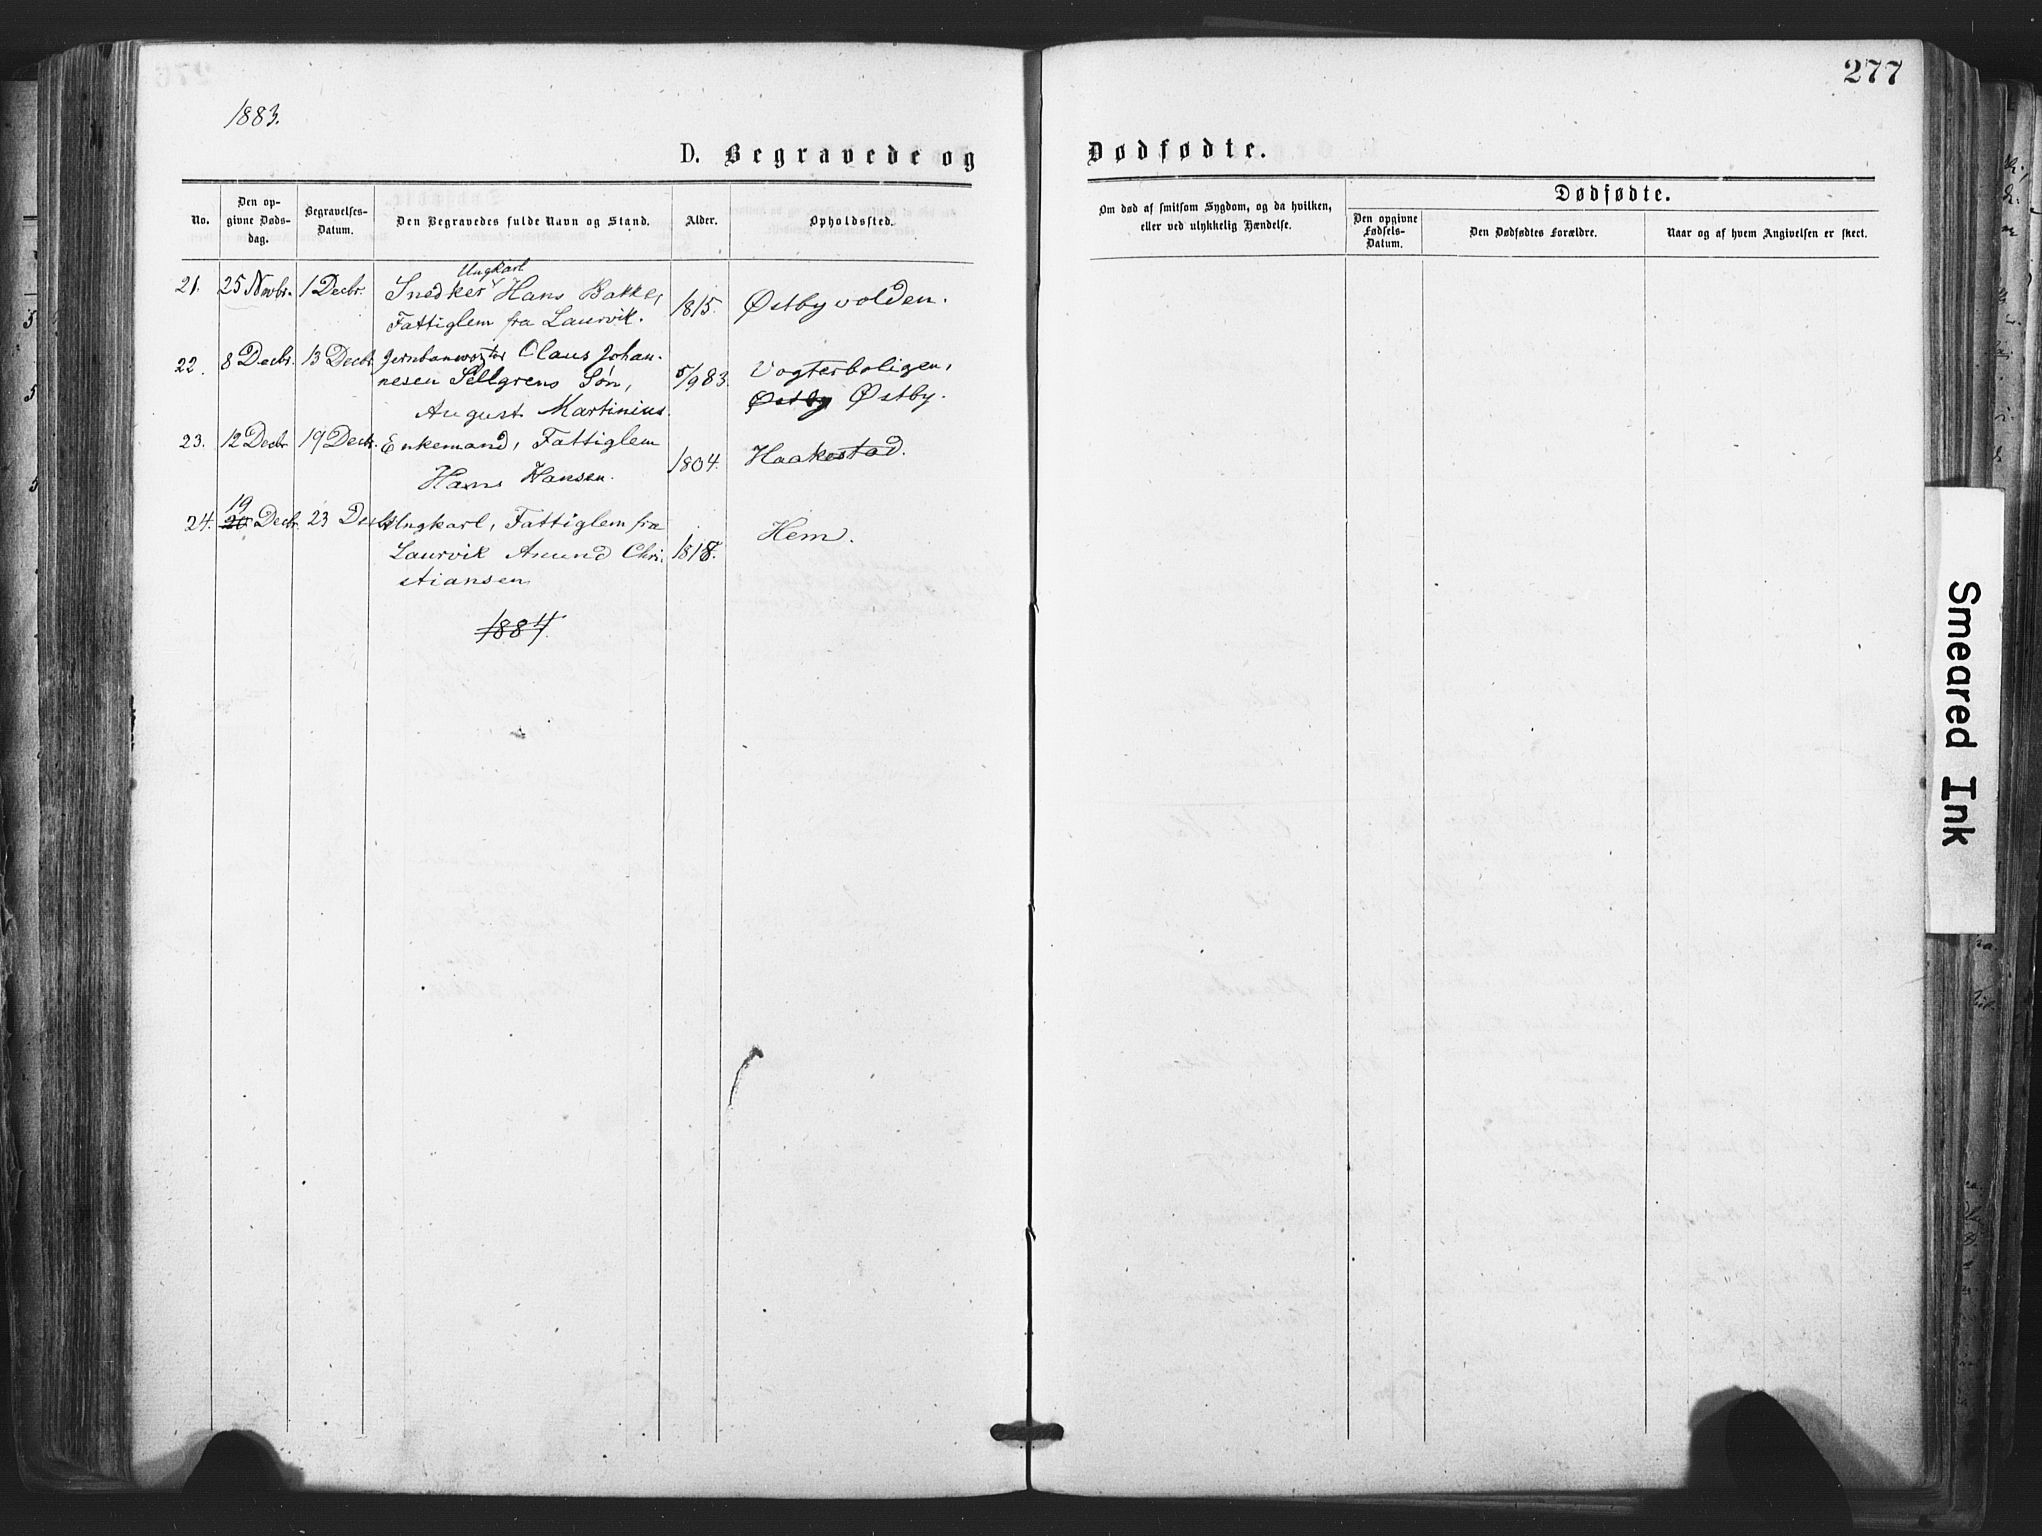 1883.
277
D. Begravede og Dødfødte.
No.
Den opgivne Dødsdag.
Begravelses-Datum.
Den Begravedes fulde Navn og Stand.
Alder.
Opholdssted.
Om død af smitsom Sygdom, og da hvilken, eller ved ulykkelig Hændelse.
Dødfødte.
Den opgivne Fødsels-Datum.
Den Dødfødtes Forældre.
Naar og af hvem Angivelsen er skeet.
Ungkarl
21. 25 Novbr. 1 Decbr. Snedker Hans Bakke, 1815. Østbyvolden.
Fattiglem fra Laurvik.
22. 8 Decbr. 13 Decbr. Jernbanevogter Olaus Johan-
nesen Sellgrens Søn, 5/9 83. Vogterboligen,
August Martinius. Østby Østby.
23. 12 Decbr 19 Decbr. Enkemand, Fattiglem 1804. Haakestad.
Hans Hansen.
19
24. 20 Decbr. 23 Decbr. Ungkarl, Fattiglem fra Hem.
Laurvik Amund Chri- 1818.
stiansen
1884.
Smeared Ink